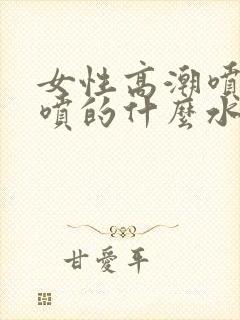 女性高潮噴
噴的什麼水
甘愛平